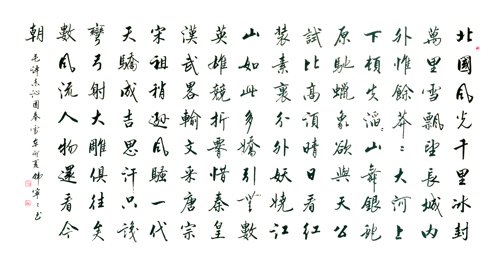 北國風光千里冰封
萬里雪飄望長城内
外惟餘莽〻大河上
下頓失滔〻山舞銀蛇
原馳蠟象欲與天公
試比高須晴日看紅
裝素裹分外妖嬈江
山如此多嬌引無數
英雄競折腰惜秦皇
漢武畧輸文采唐宗
宋祖稍遜風騷一代
天驕成吉思汗只識
彎弓射大雕俱往矣
數風流人物還看今
朝
毛澤東沁園春雪